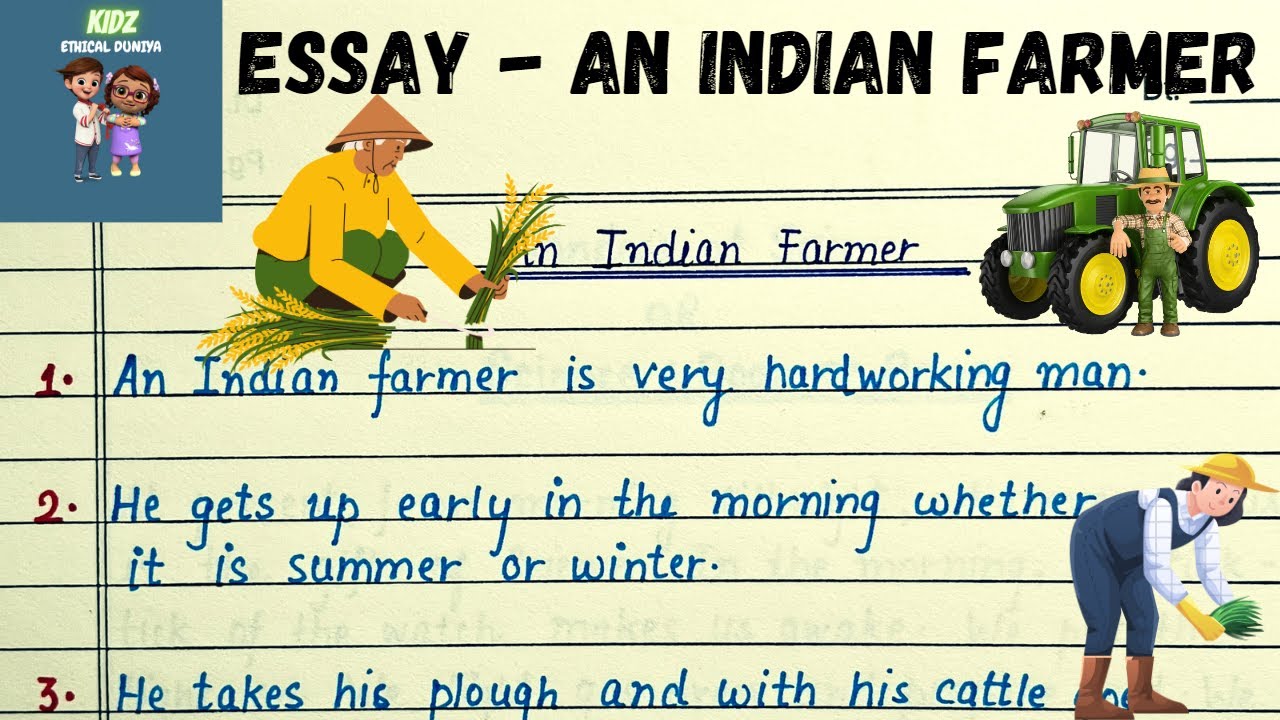 KIDZ
ETHICAL DUNIYA
ESSAY - AN INDIAN FARMER
Indian Farmer
1. An Indian farmer is very hardworking man.
2. He gets up early in the morning whether
it is summer or winter.
3. He takes his plough and with his cattle